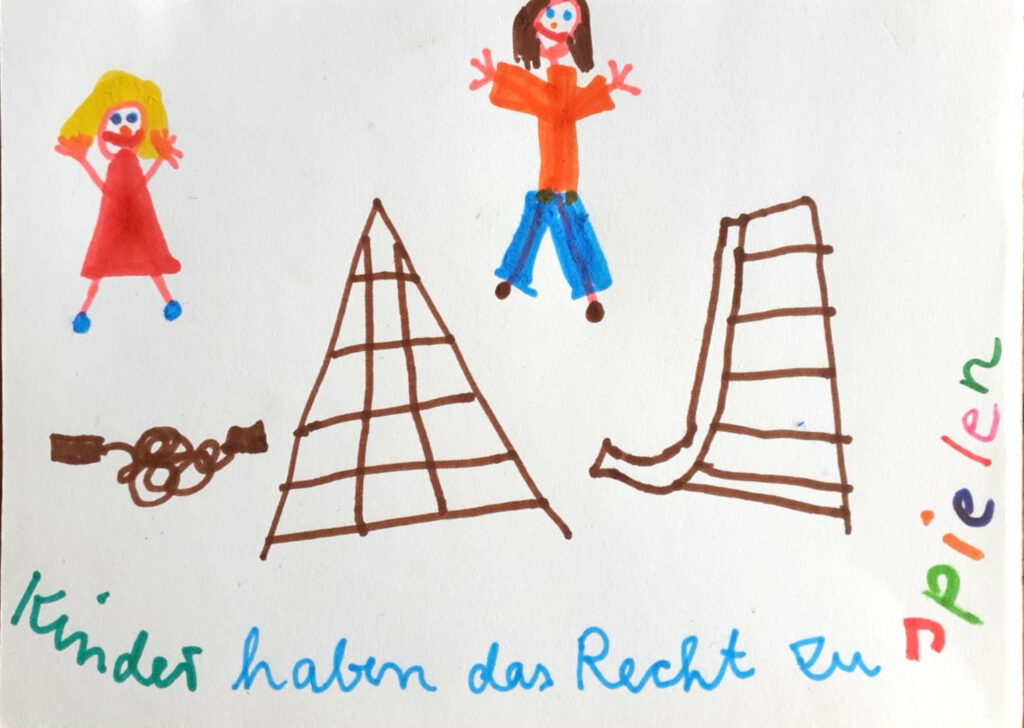 Kinder haben das Recht zu spielen